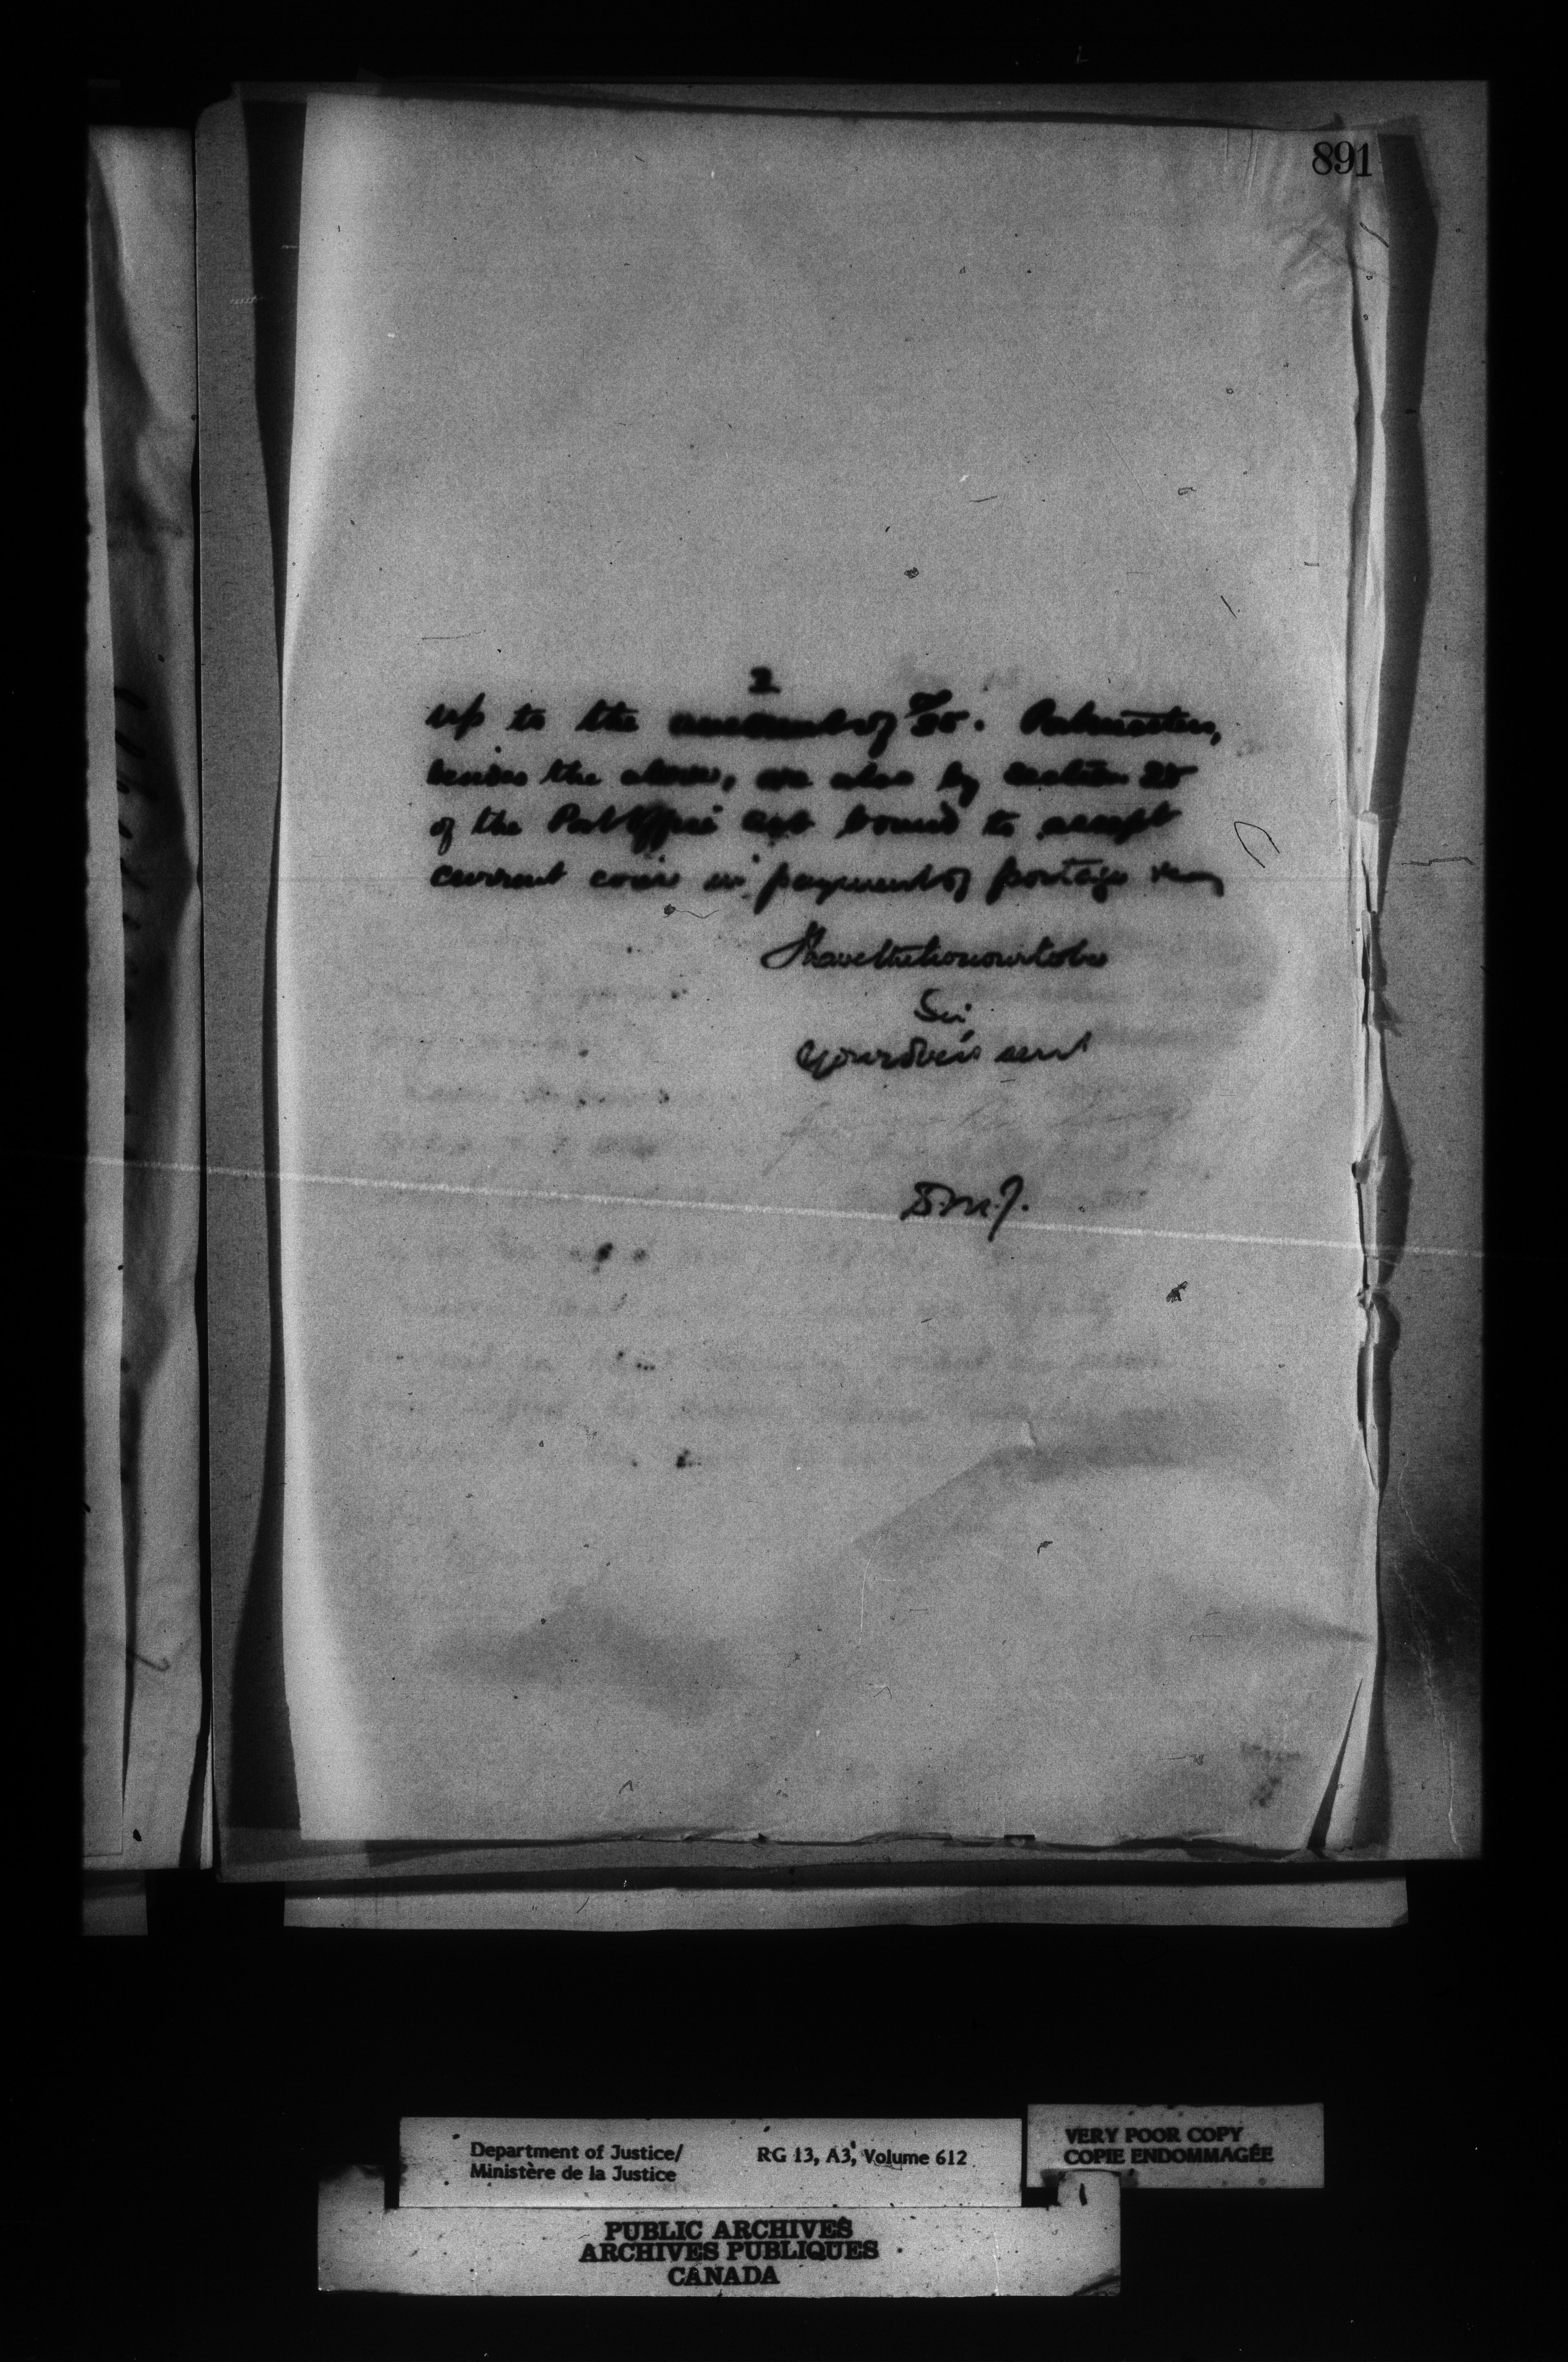 891
2
up to the amount of $20. Postmasters,
besides the above, are also by section 25
of the Post Office Act bound to accept
current coin in payment of postage
I have the honour to be
Sir
Your Obt servt
D.M.J.
Department of Justice/
Ministère de la Justice
RG 13, A3, Volume 612
VERY POOR COPY
COPIE ENDOMMAGÉE
PUBLIC ARCHIVES
ARCHIVES PUBLIQUES
CANADA